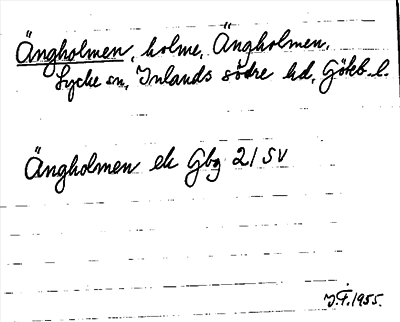 Ängholmen, holme, Ängholmen,
Lycke sn, Inlands södre hd, Göteb. l.
Ängholmen ek Gbg 21 SV
J.F. 1955.